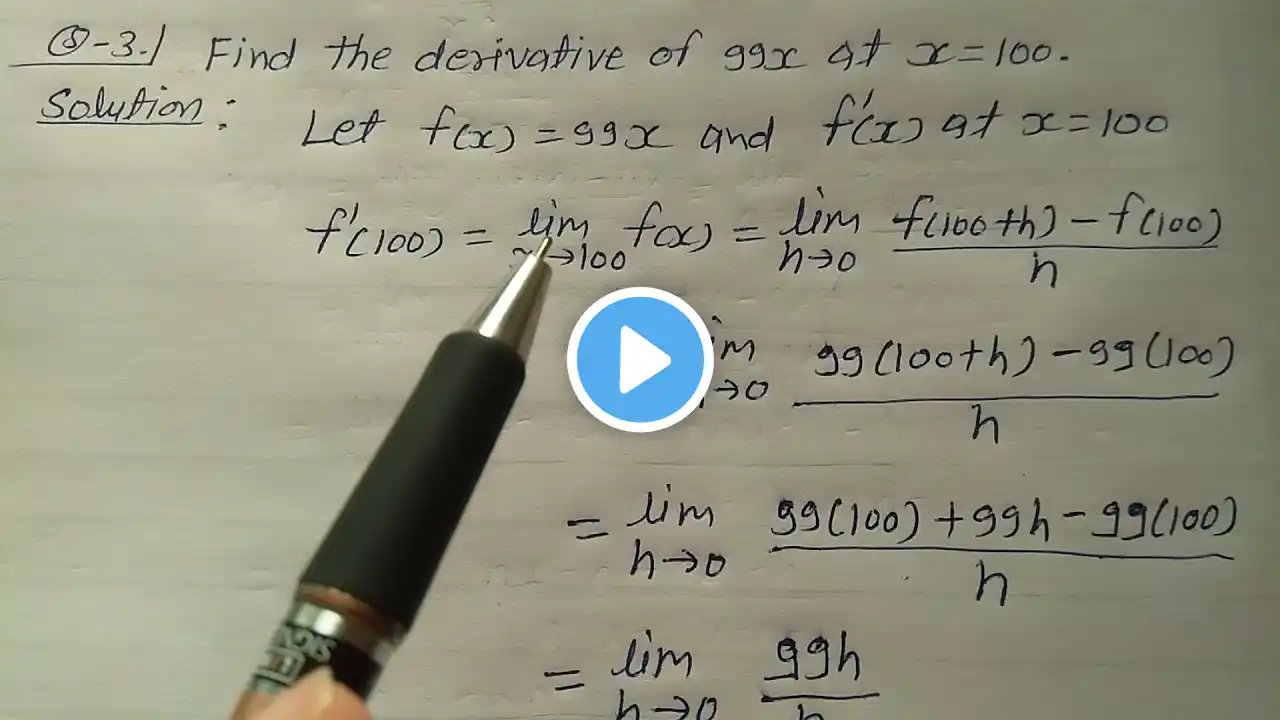 Q-3. Find the derivative of 99x at x=100.
Solution: Let f(x) = 99x and f'(x) at x=100
f'(100) = lim x→100 f(x) = lim h→0 f(100+h) - f(100) / h
lim h→0 99(100+h) - 99(100) / h
= lim h→0 99(100) + 99h - 99(100) / h
= lim h→0 99h / h